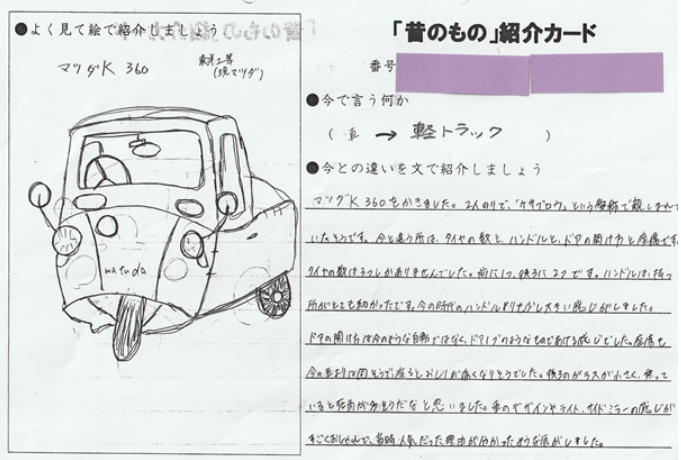 ●よく見て絵で紹介しましょう
マツダK 360
東洋工業
(現マツダ)
matuda
「昔のもの」紹介カード
番号
●今で言う何か
( 車 → 軽トラック )
●今との違いを文で紹介しましょう
マツダK 360をかきました。2人のりで、「ケサブロウ」という愛称で親しまれて
いたそうです。今と違う所は、タイヤの数と、ハンドルと、ドアの開け方と座席です。
タイヤの数は3つしかありませんでした。前に1つ、後ろに2つです。ハンドルは、持つ
所がとても細かったです。今の時代のハンドルよりも少し大きい感じがしました。
ドアの開け方は今のような自動ではなく、ドアノブのようなものであける感じでした。座席も
今の車よりは固そうで座るとおしりが痛くなりそうでした。後ろのガラスが小さく、乗って
いると死角が多そうだなと思いました。車のデザインやライト、サイドミラーの感じが
すごくおしゃれで、当時人気だった理由が分かったような気がしました。